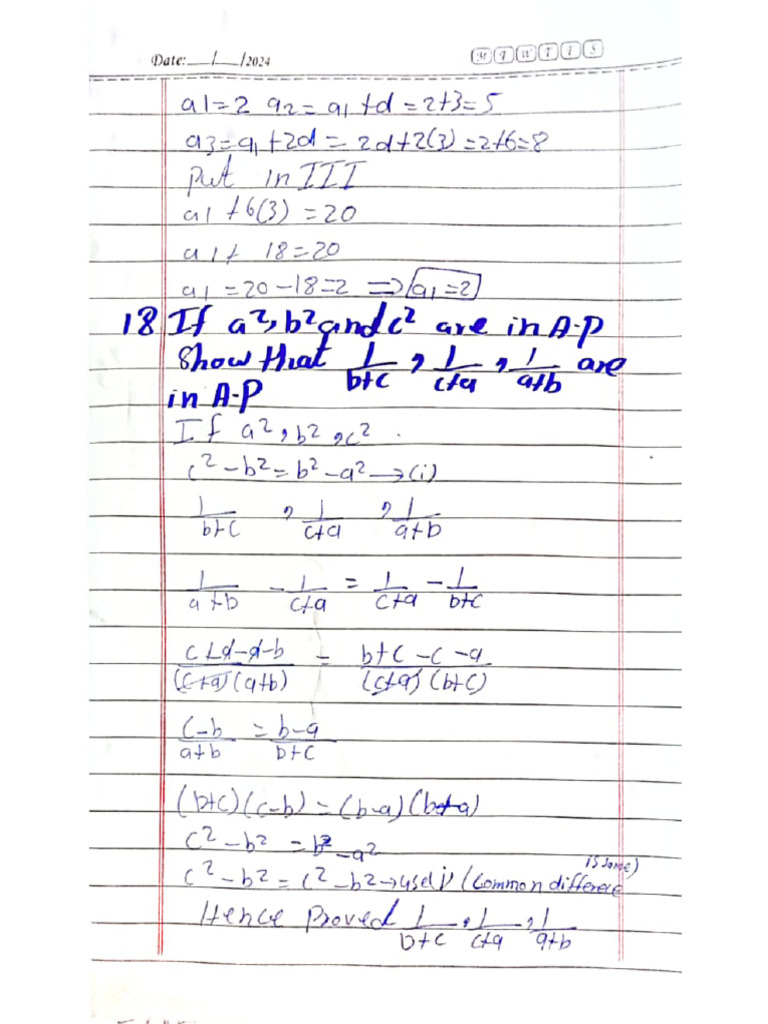 Date: __/__/2024 M T W T F S
a1=2 a2=a1+d=2+3=5
a3=a1+2d=2d+2(3)=2+6=8
Put in III
a1+6(3)=20
a1+ 18=20
a1=20-18=2 ⇒ a1=2
18 If a²,b² and c² are in A-P
Show that 1/(b+c) , 1/(c+a) , 1/(a+b) are
in A-P
If a²,b²,c².
c²-b²=b²-a²→(i)
1/(b+c) , 1/(c+a) , 1/(a+b)
1/(a+b) - 1/(c+a) = 1/(c+a) - 1/(b+c)
(c+a-a-b)/((c+a)(a+b)) = (b+c-c-a)/((c+a)(b+c))
(c-b)/(a+b) = (b-a)/(b+c)
(b+c)(c-b)=(b-a)(b+a)
c²-b²=b²-a²
is same)
c²-b²=c²-b²→use i (Common differece
Hence Proved 1/(b+c) , 1/(c+a) , 1/(a+b)